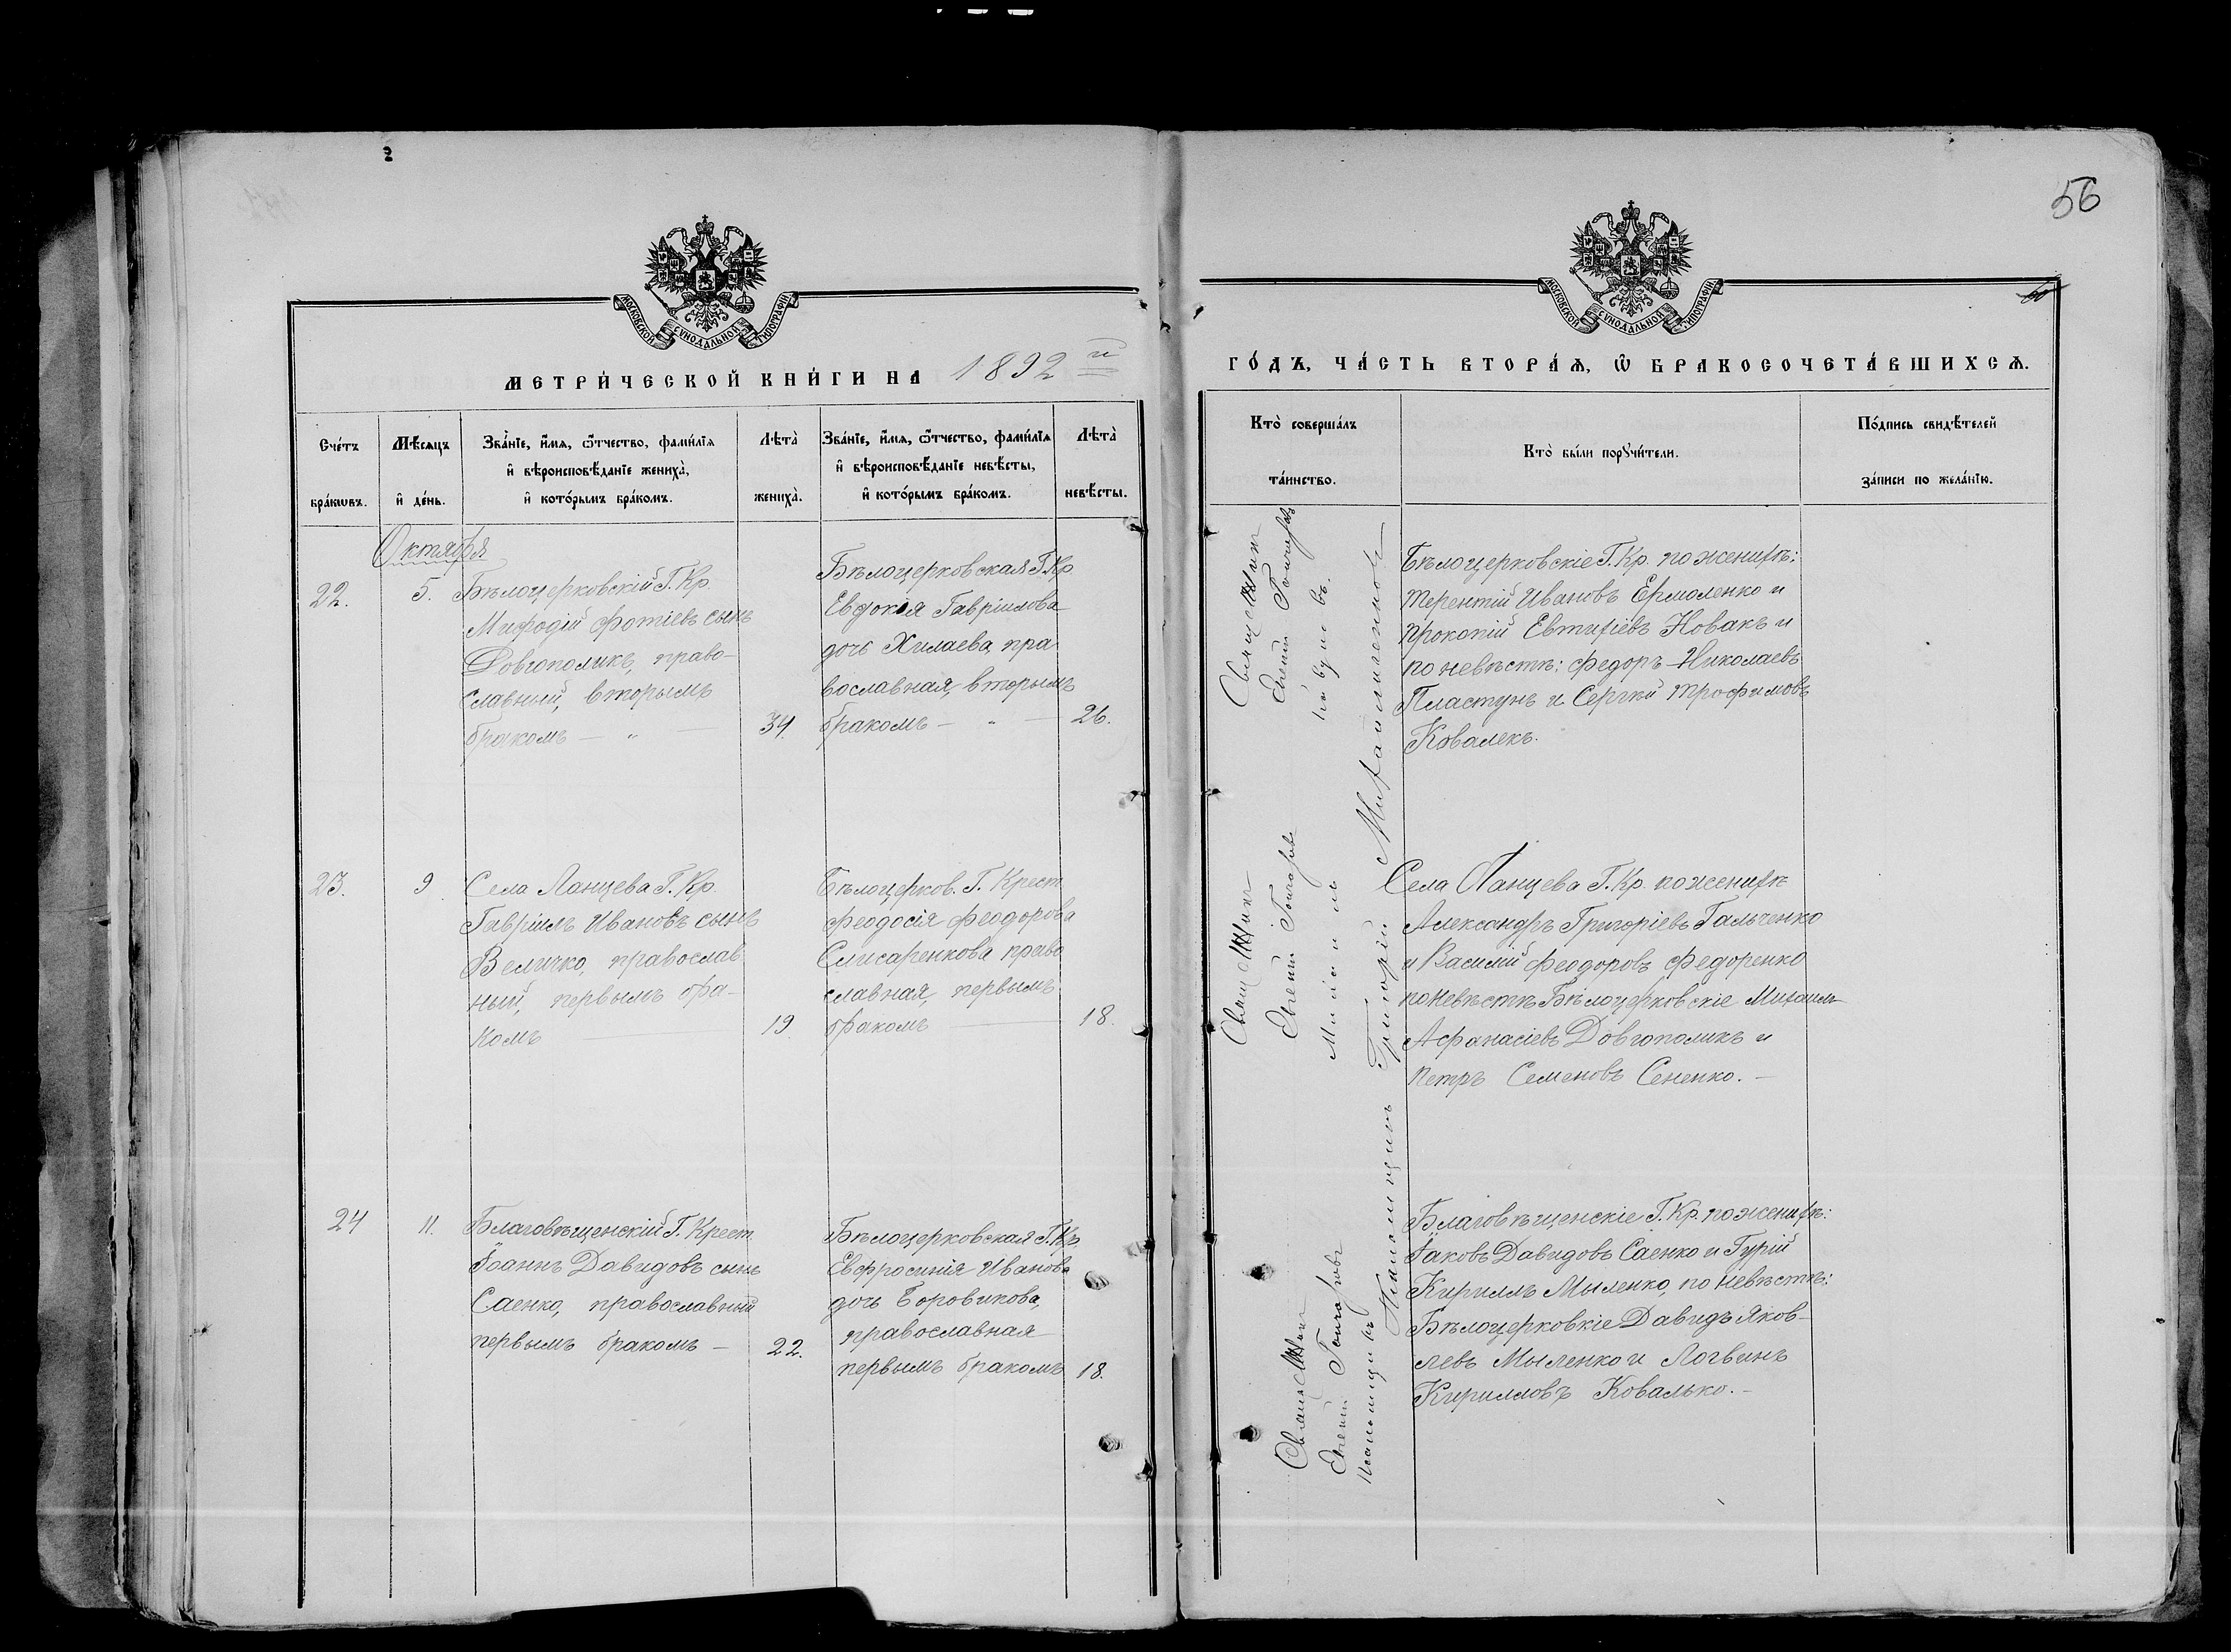 56
60
МОСКОВСКОЙ СѴНОДАЛЬНОЙ ТИПОГРАФІИ
МОСКОВСКОЙ СѴНОДАЛЬНОЙ ТИПОГРАФІИ
МЕТРИ́ЧЕСКОЙ КНИ́ГИ НА 1892 й
ГО́ДЪ, ЧА́СТЬ ВТОРА́Ѧ, Ѽ БРАКОСОЧЕТА́ВШИХСѦ.
Сче́тъ бра́кѡвъ.
Мѣ́сѧцъ и҆ де́нь.
Зва́нїе, и҆́мѧ, ѻ҆́тчество, фамилїѧ
и҆ вѣроисповѣ́данїе жениха̀,
и҆ кото́рымъ бра́комъ.
Лѣта̀ жениха̀.
Зва́нїе, и҆́мѧ, ѻ҆́тчество, фамилїѧ
и҆ вѣроисповѣ́данїе невѣ́сты,
и҆ кото́рымъ бра́комъ.
Лѣта̀ невѣ́сты.
Кто̀ соверша́лъ
та́инство.
Кто̀ бы́ли порꙋчи́тели.
По́дпись свидѣ́телей
за́писи по жела́нїю.
Октября
22.
5.
Бѣлоцерковскій Г. Кр.
Мифодій Фотіевъ сынъ
Довгополикъ, право-
славный, вторымъ
бракомъ — „ —
34.
Бѣлоцерковская Г. Кр.
Евдокія Гавріилова
дочь Хилаева, пра
вославная, вторымъ
бракомъ — „ —
26.
Евгеній Гончаровъ
Бѣлоцерковскіе Г. Кр. по женихѣ:
Терентій Ивановъ Ермоленко и
Прокопій Евтихіевъ Новакъ и
по невѣстѣ: Федоръ Николаевъ
Пластунъ и Сергѣй Трофимовъ
Ковалекъ.
23.
9
Села Ланцева Г. Кр.
Гавріилъ Ивановъ сынъ
Величко, православ
ный, первымъ бра-
комъ
19
Бѣлоцерков. Г. Крест.
Феодосія Феодорова
Слисаренкова право
славная, первымъ
бракомъ
18.
Евгеній Гончаровъ
Григорій Михайличенко
Села Ланцева Г. Кр. по женихѣ
Александръ Григоріевъ Гальченко
и Василій Феодоровъ Федоренко
по невѣстѣ Бѣлоцерковскіе Михаилъ
Афанасіевъ Довгополикъ и
Петръ Семеновъ Сененко. —
24
11.
Благовѣщенскій Г. Крест.
Іоаннъ Давидовъ сынъ
Саенко, православный
первымъ бракомъ —
22.
Бѣлоцерковская Г. Кр
Евфросинія Иванова
дочь Боровикова,
православная
первымъ бракомъ
18.
Евгеній Гончаровъ
Благовѣщенскіе Г. Кр. по женихѣ:
Іаковъ Давидовъ Саенко и Гурій
Кириллъ Мыленко, по невѣстѣ:
Бѣлоцерковкіе Давидъ Яков-
левъ Мыленко и Логвинъ
Кирилловъ Ковалько. —